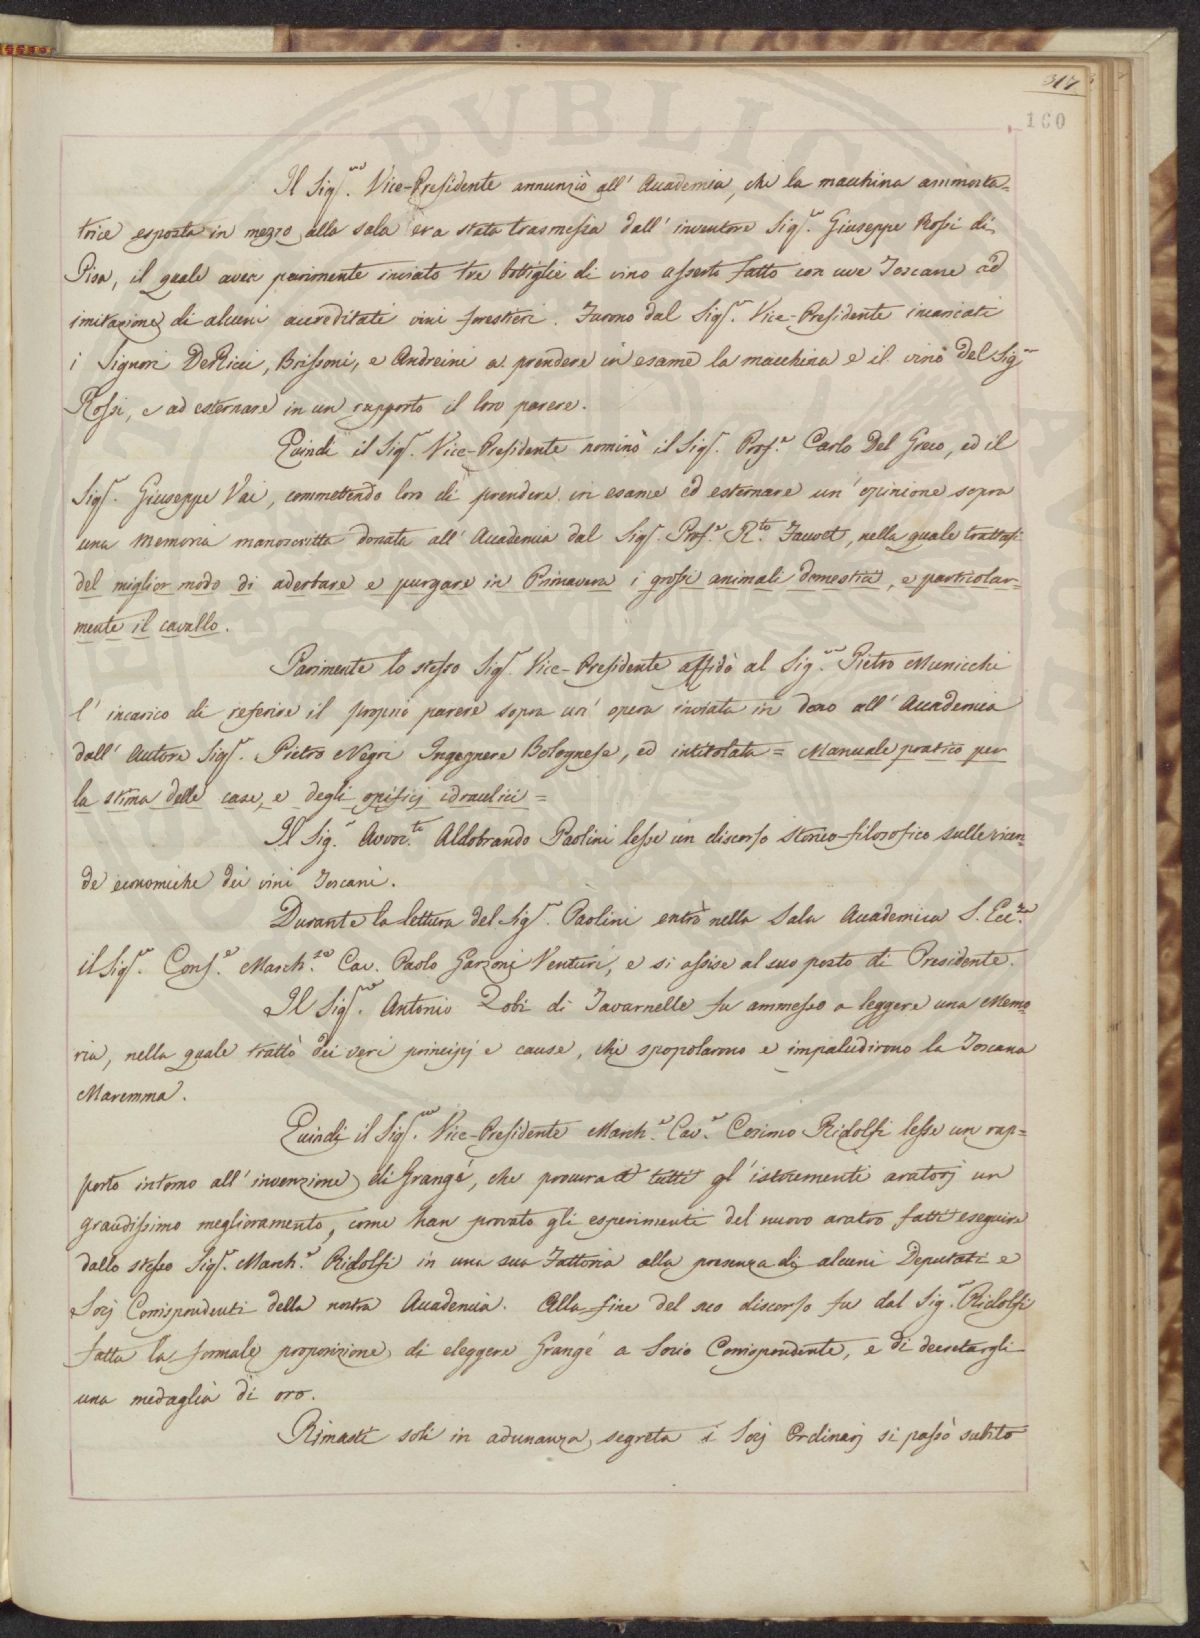 317
160
Il Sig.re Vice-Presidente annunziò all' Accademia, che la macchina ammosta=
trice esposta in mezzo alla sala era stata trasmessa dall' inventore Sig.re Giuseppe Rossi di
Pisa, il quale avea parimente inviato tre bottiglie di vino asserto fatto con uve Toscane ad
imitazione di alcuni accreditati vini forestieri. Furono dal Sig.re Vice-Presidente incaricati
i Signori DeRicci, Brissoni, e Andreini a prendere in esame la macchina e il vino del Sig.r
Rossi, e ad esternare in un rapporto il loro parere.
Quindi il Sig.r Vice-Presidente nominò il Sig.r Prof.e Carlo Del Greco, ed il
Sig.r Giuseppe Vai, commettendo loro di prendere in esame ed esternare un' opinione sopra
una Memoria manoscritta donata all' Accademia dal Sig.r Prof.e R.to Fauvet, nella quale trattasi
del miglior modo di aderbare e purgare in Primavera i grossi animali domestici, e particolar=
mente il cavallo.
Parimente lo stesso Sig.r Vice-Presidente affidò al Sig.re Pietro Municchi
l' incarico di referire il proprio parere sopra un' opera inviata in dono all' Accademia
dall' Autore Sig.r Pietro Negri Ingegnere Bolognese, ed intitolata = Manuale pratico per
la stima delle case, e degli opificj idraulici =
Il Sig.r Avvoc.to Aldobrando Paolini lesse un discorso storico-filosofico sulle vicen=
de economiche dei vini Toscani.
Durante la lettura del Sig.r Paolini entrò nella Sala Accademica S. Ecc.za
il Sig.re Cons.e March.se Cav. Paolo Garzoni Venturi, e si assise al suo posto di Presidente.
Il Sig.re Antonio Zobi di Tavarnelle fu ammesso a leggere una Memo=
ria, nella quale trattò dei veri principj e cause, che spopolarono e impaludirono la Toscana
Maremma.
Quindi il Sig.re Vice-Presidente March.e Cav.e Cosimo Ridolfi lesse un rap=
porto intorno all' invenzione di Grangé, che procura a tutti gl' istrumenti aratorj un
grandissimo miglioramento, come han provato gli esperimenti del nuovo aratro fatti eseguire
dallo stesso Sig.r March.e Ridolfi in una sua Fattoria alla presenza di alcuni Deputati e
Socj Corrispondenti della nostra Accademia. Alla fine del suo discorso fu dal Sig.r Ridolfi
fatta la formale proposizione di eleggere Grangé a Socio Corrispondente, e di decretargli
una medaglia di oro.
Rimasti soli in adunanza segreta i Socj Ordinarj si passò subito